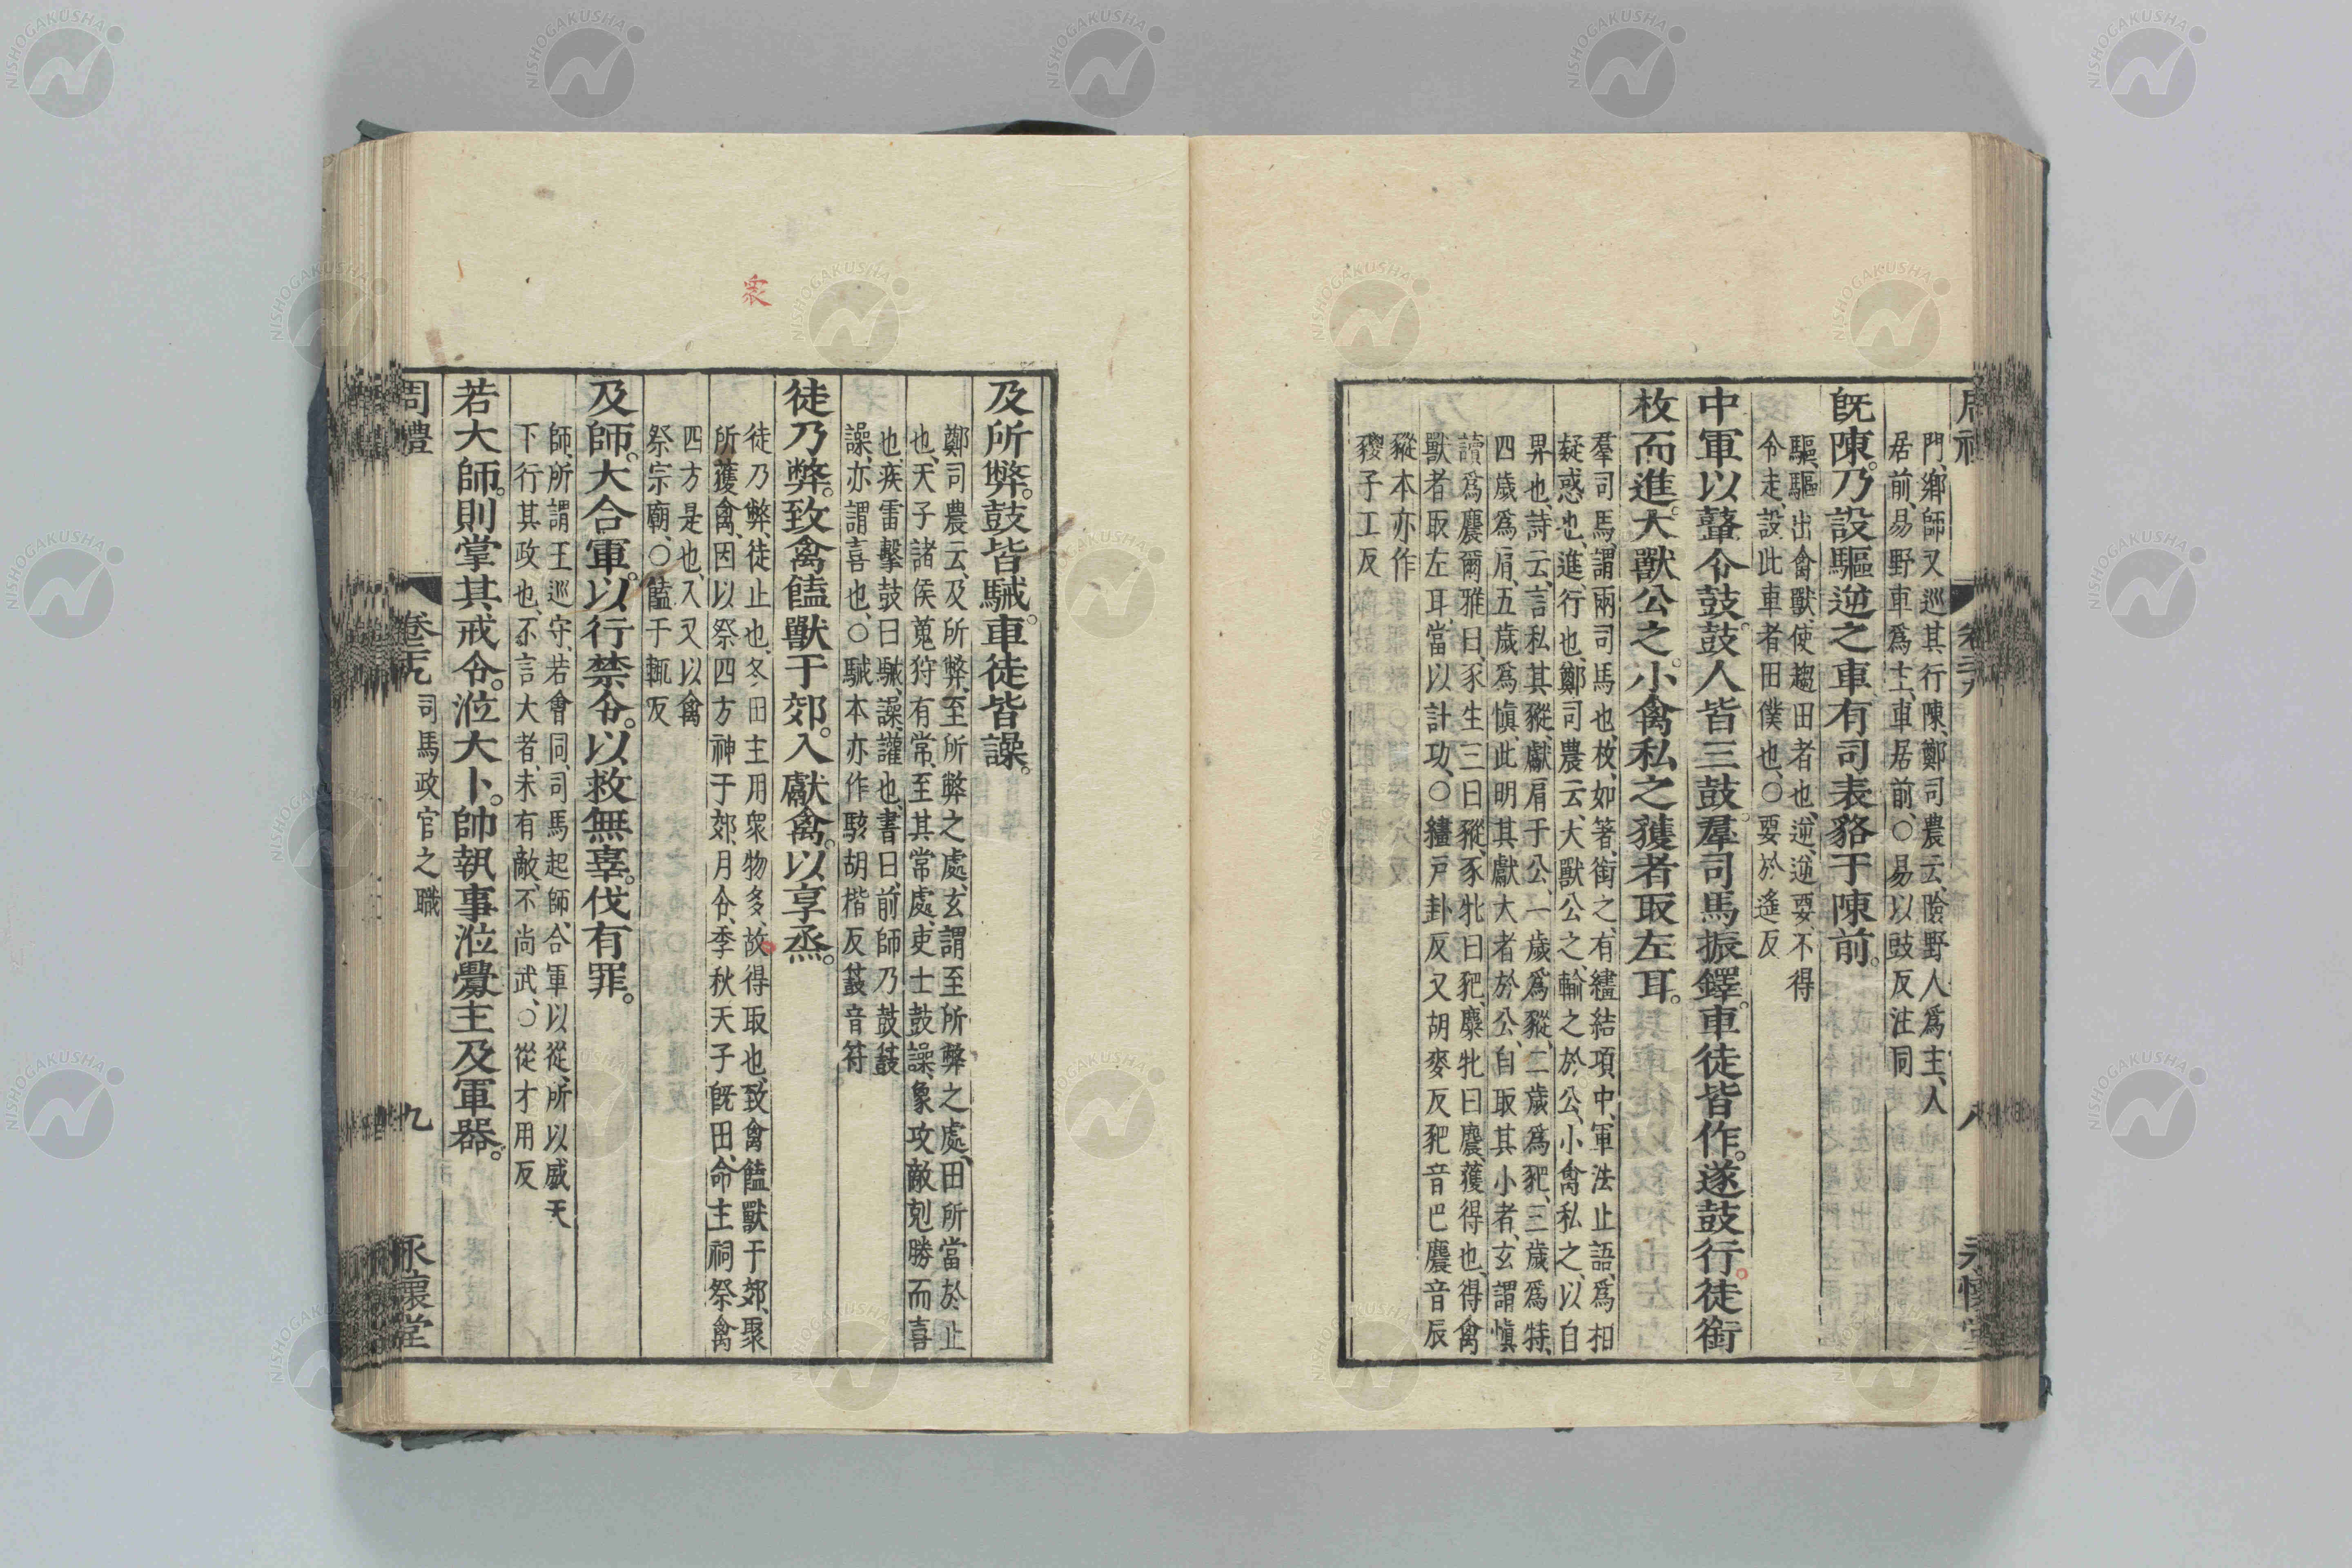 門、鄉師又巡其行陳、鄭司農云、險野人爲主、人
居前、易野車爲主、車居前、○易以豉反注同
旣陳。乃設驅逆之車有司表貉于陳前。
驅、驅出禽獸、使趨田者也、逆、逆要、不得
令走、設此車者田僕也、○要於遙反
中軍以鼙令鼓。鼓人皆三鼓。羣司馬振鐸。車徒皆作。遂鼓行。徒銜
枚而進。大獸公之。小禽私之獲者取左耳。
羣司馬、謂兩司馬也、枚、如箸、銜之、有繣結項中、軍法止語、爲相
疑惑也、進行也、鄭司農云、大獸公之、輸之於公、小禽私之、以自
畀也、詩云、言私其豵、獻肩于公、一歲爲豵、二歲爲豝、三歲爲特、
四歲爲肩、五歲爲愼、此明其獻大者於公、自取其小者、玄謂愼
讀爲麎爾雅曰、豕生三曰豵、豕牝曰豝、麋牝曰麎、獲得也、得禽
獸者取左耳、當以計功、○繣戸卦反又胡麥反豝音巴麎音辰
豵本亦作
猣子工反
周禮
八
永懷堂
及所弊。鼓皆駴。車徒皆譟。
鄭司農云、及所弊、至所弊之處、玄謂至所弊之處、田所當於止
也、天子諸侯蒐狩有常、至其常處、吏士鼓譟、象攻敵剋勝而喜
也、疾雷擊鼓曰駴、譟、讙也、書曰、前師乃鼓鼖
譟、亦謂喜也、○駴本亦作駭胡楷反鼖音符
徒乃弊。致禽饁獸于郊。入獻禽。以享烝。
徒乃弊、徒止也、冬田主用衆物多、故得取也、致禽饁獸于郊、聚
所獲禽、因以祭四方神于郊、月令、季秋天子旣田、命主祠祭禽
四方是也、入又以禽
祭宗廟、○饁于輒反
及師。大合軍。以行禁令。以救無辜。伐有罪。
師、所謂王巡守、若會同、司馬起師、合軍以從、所以威天
下行其政也、不言大者、未有敵、不尚武、○從才用反
若大師。則掌其戒令。涖大卜。帥執事涖釁主及軍器。
周禮
卷二十九
司馬政官之職
九
永懷堂
衆